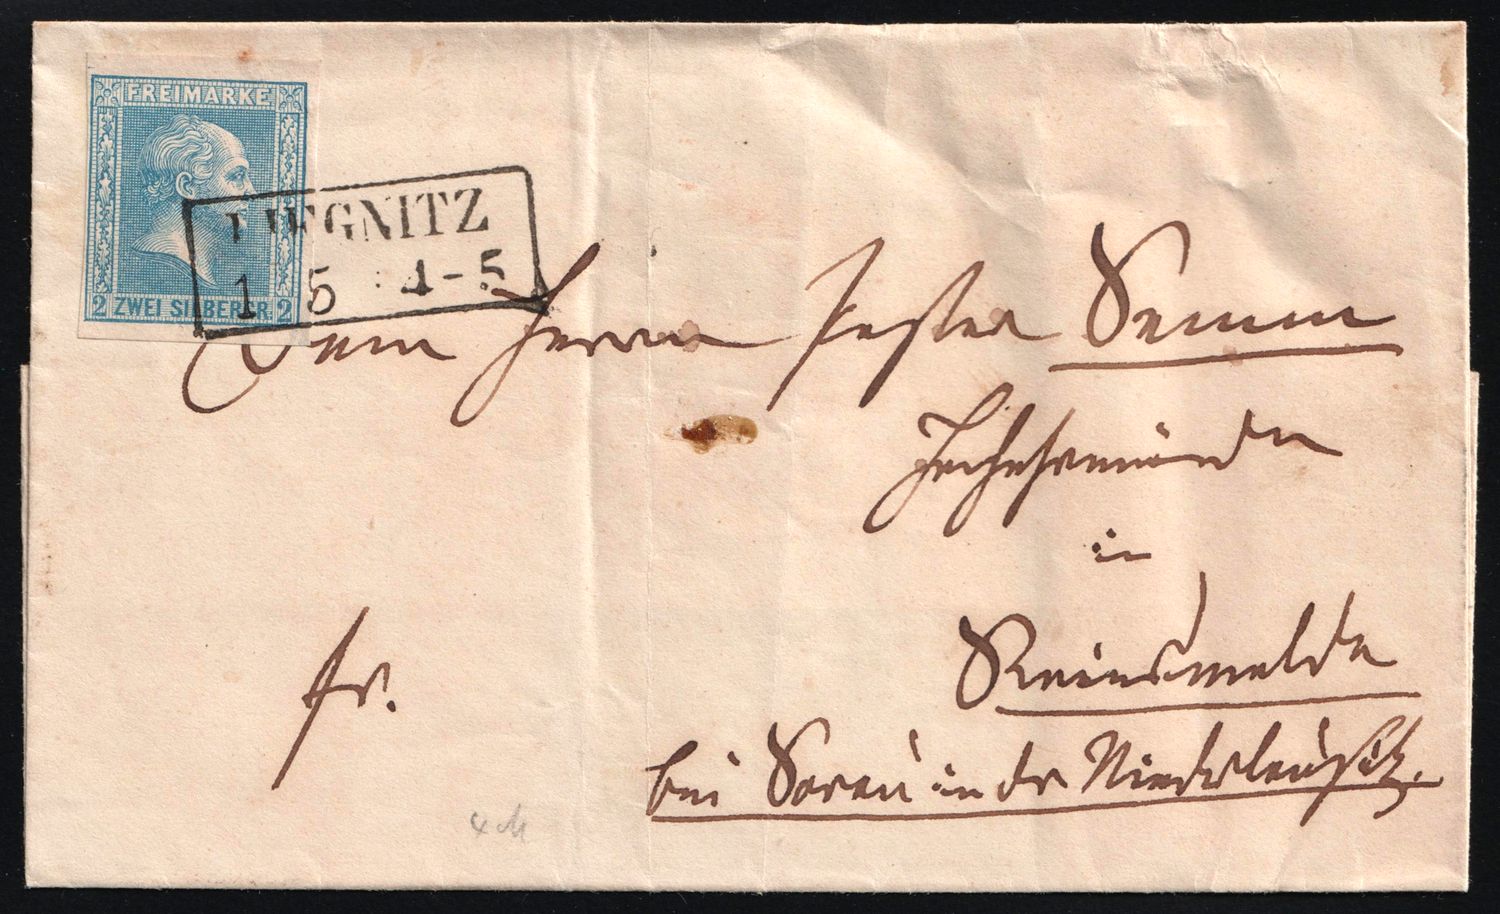 FREIMARKE
2 ZWEI SILBERGR. 2
LIEGNITZ
1 5 4-5
Dem Herrn Pastor Semm
Hochehrwürden
in
Reinswalde
bei Sorau in der Niederlausitz.
fr.